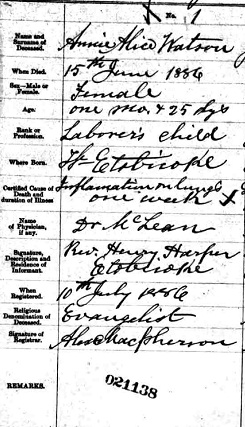 No. 1
Name and Surname of Deceased. Annie Alice Watson
When Died. 15th June 1886
Sex—Male or Female. Female
Age. one mo. & 25 dys
Rank or Profession. Laborer's child
Where Born. Etobicoke
Certified Cause of Death and duration of Illness Inflamation on lungs
one week X
Name of Physician, if any. Dr McLean
Signature, Description and Residence of Informant. Rev. Henry Harper
Etobicoke
When Registered. 10th July 1886
Religious Denomination of Deceased. Evangelist
Signature of Registrar. Alex MacPherson
REMARKS. 021138